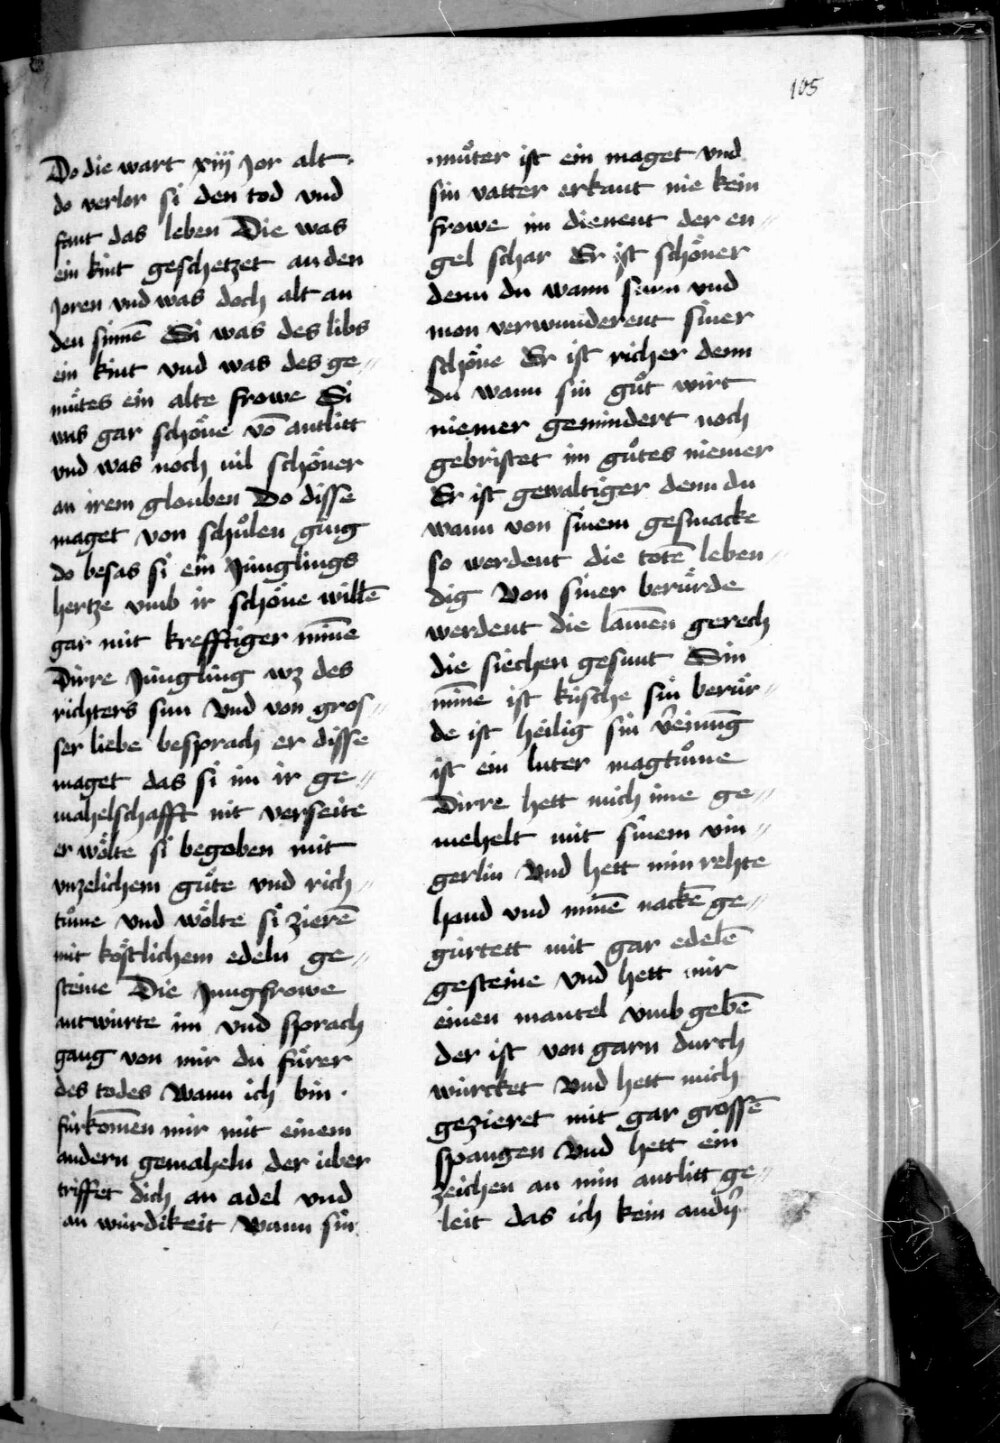 105
Do die wart xiij Jor alt ·
do verlor si den tod vnd
fant das leben Die was
ein kint geschetzet an den
Joren vnd was doch alt an
den sinnē Si was des libs
ein kint vnd was des ge〃
muͤtes ein alte frowe Si
was gar schoͤne vō antlitt
vnd was noch vil schoͤner
an irem glouben Do disse
maget von schuͦlen ging
do besas si ein Jünglings
hertze vmb ir schoͤne willē
gar mit krefftiger miñe
Dirre Jüngling wz des
richters sun Vnd von gros〃
ser liebe besprach er disse
maget das si im ir ge〃
mahelschafft nit verseite
er woͤlte si begoben mit
vnzelichem guͦte vnd rich〃
tuͦme vnd woͤlte si zierē
mit koͤstlichem edeln ge〃
steine Die Jungfrowe
antwürte im vnd sprach
gang von mir du fuͤrer
des todes Wann ich bin ·
fürkōmen mir mit einem
andern gemaheln der über
triffet dich an adel vnd
an würdikeit Wann sin
· muͦter ist ein maget vnd
sin vatter erkant nie kein
frowe im dienent der en〃
gel schar Er ist schoͤner
denn du wann sunn vnd
mon verwunderent siner
schoͤne Er ist richer denn
du wann sin guͦt wirt
niemer gemindert noch
gebristet im guͦtes niemer
Er ist gewaltiger denn du
wann von sinem gesmacke
so werdent die totē leben〃
dig Von siner beruͤrde
werdent die lam̄en gerech
die siechen gesunt Sin
miñe ist küsche sin beruͤr〃
de ist heilig sin v̉einunḡ
ist ein luter magtuͦme
Dirre hett mich ime ge〃
mehelt mit sinem vin〃
gerlin Vnd hett min rehte
hand vnd minē nackē ge〃
gürtett mit gar edelē
gesteine Vnd hett mir
einen mantel vmb gebē
der ist von garn durch
würcket Vnd hett mich
gezieret mit gar grossē
spangen Vnd hett ein
zeichen an min antlitt ge〃
leit das ich kein andṉ̉